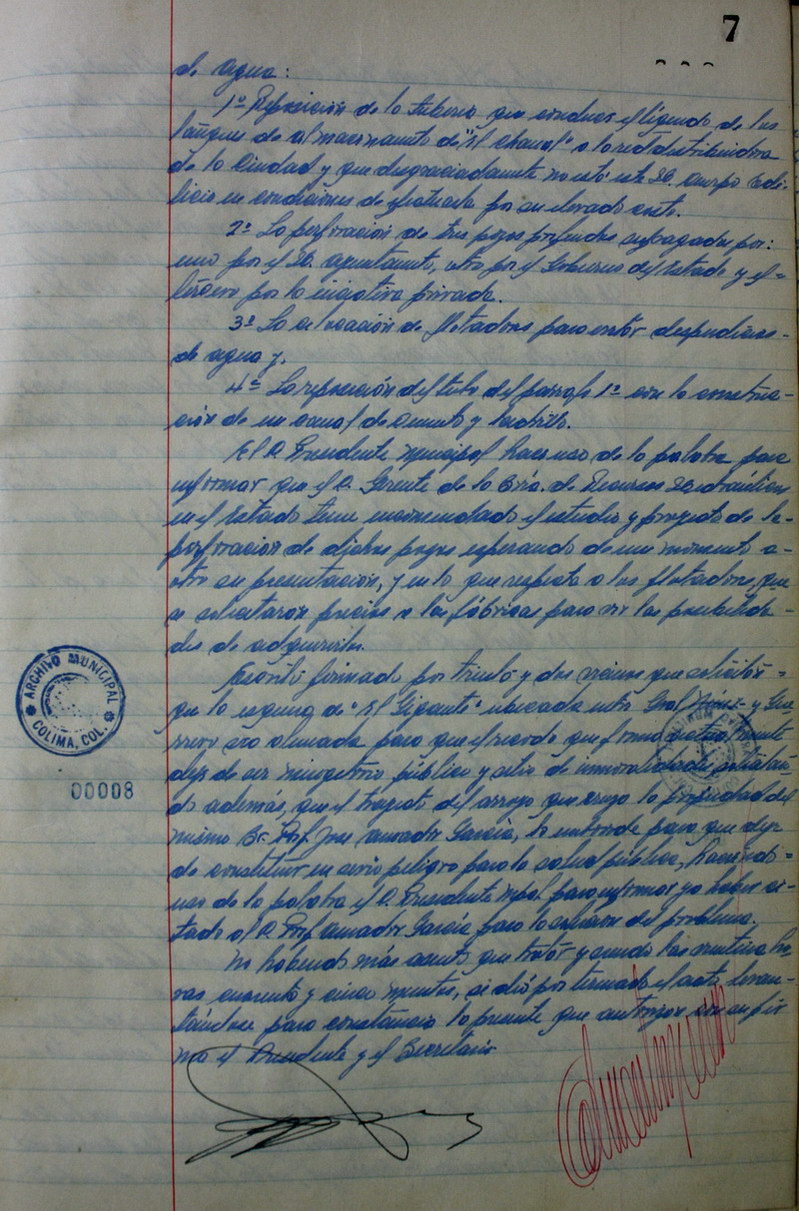 7
de agua:
1º Reposición de la tubería que conduce el líquido de los
tanques de almacenamiento de "El Chanal" a la red distribuidora
de la Ciudad y que desgraciadamente no está este H. Cuerpo Edi-
licio en condiciones de efectuarla por su elevado costo.
2º La perforación de tres pozos profundos sufragados por:
uno por el H. Ayuntamiento, otro por el Gobierno del Estado y el
tercero por la iniciativa privada.
3º La colocación de flotadores para evitar desperdicios
de agua y.
4º La reposición del tubo del párrafo 1º con la construc-
ción de un canal de cemento y ladrillo.
El C. Presidente Municipal hace uso de la palabra para
informar que el C. Gerente de la Sría. de Recursos Hidráulicos
en el Estado tiene encomendado el estudio y proyecto de la
perforación de dichos pozos esperando de un momento a
otro su presentación, y en lo que respecta a los flotadores, que
se solicitaron precios a las fábricas para ver las posibilida-
des de adquirirlos.
Escrito firmado por treinta y dos vecinos que solicitan
que la esquina de "El Gigante" ubicada entre Gral. Núñez y Gue-
rrero sea alumbrada para que el recodo que forma
deje de ser mingitorio público y sitio de inmoralidades
do además, que el trayecto del arroyo que cruza la propiedad del
mismo Sr. Prof. José Amador García, lo embovede para que deje
de constituir un serio peligro para la salud pública, haciendo
uso de la palabra el C. Presidente Mpal. para informar ya haber ci-
tado al C. Prof. Amador García para la solución del problema.
No habiendo más asunto que tratar y siendo las veintiuna ho-
ras cuarenta y cinco minutos, se dió por terminado el acto, levan-
tándose para constancia la presente que autorizan con su fir-
ma el Presidente y el Secretario
ARCHIVO MUNICIPAL
COLIMA, COL.
00008